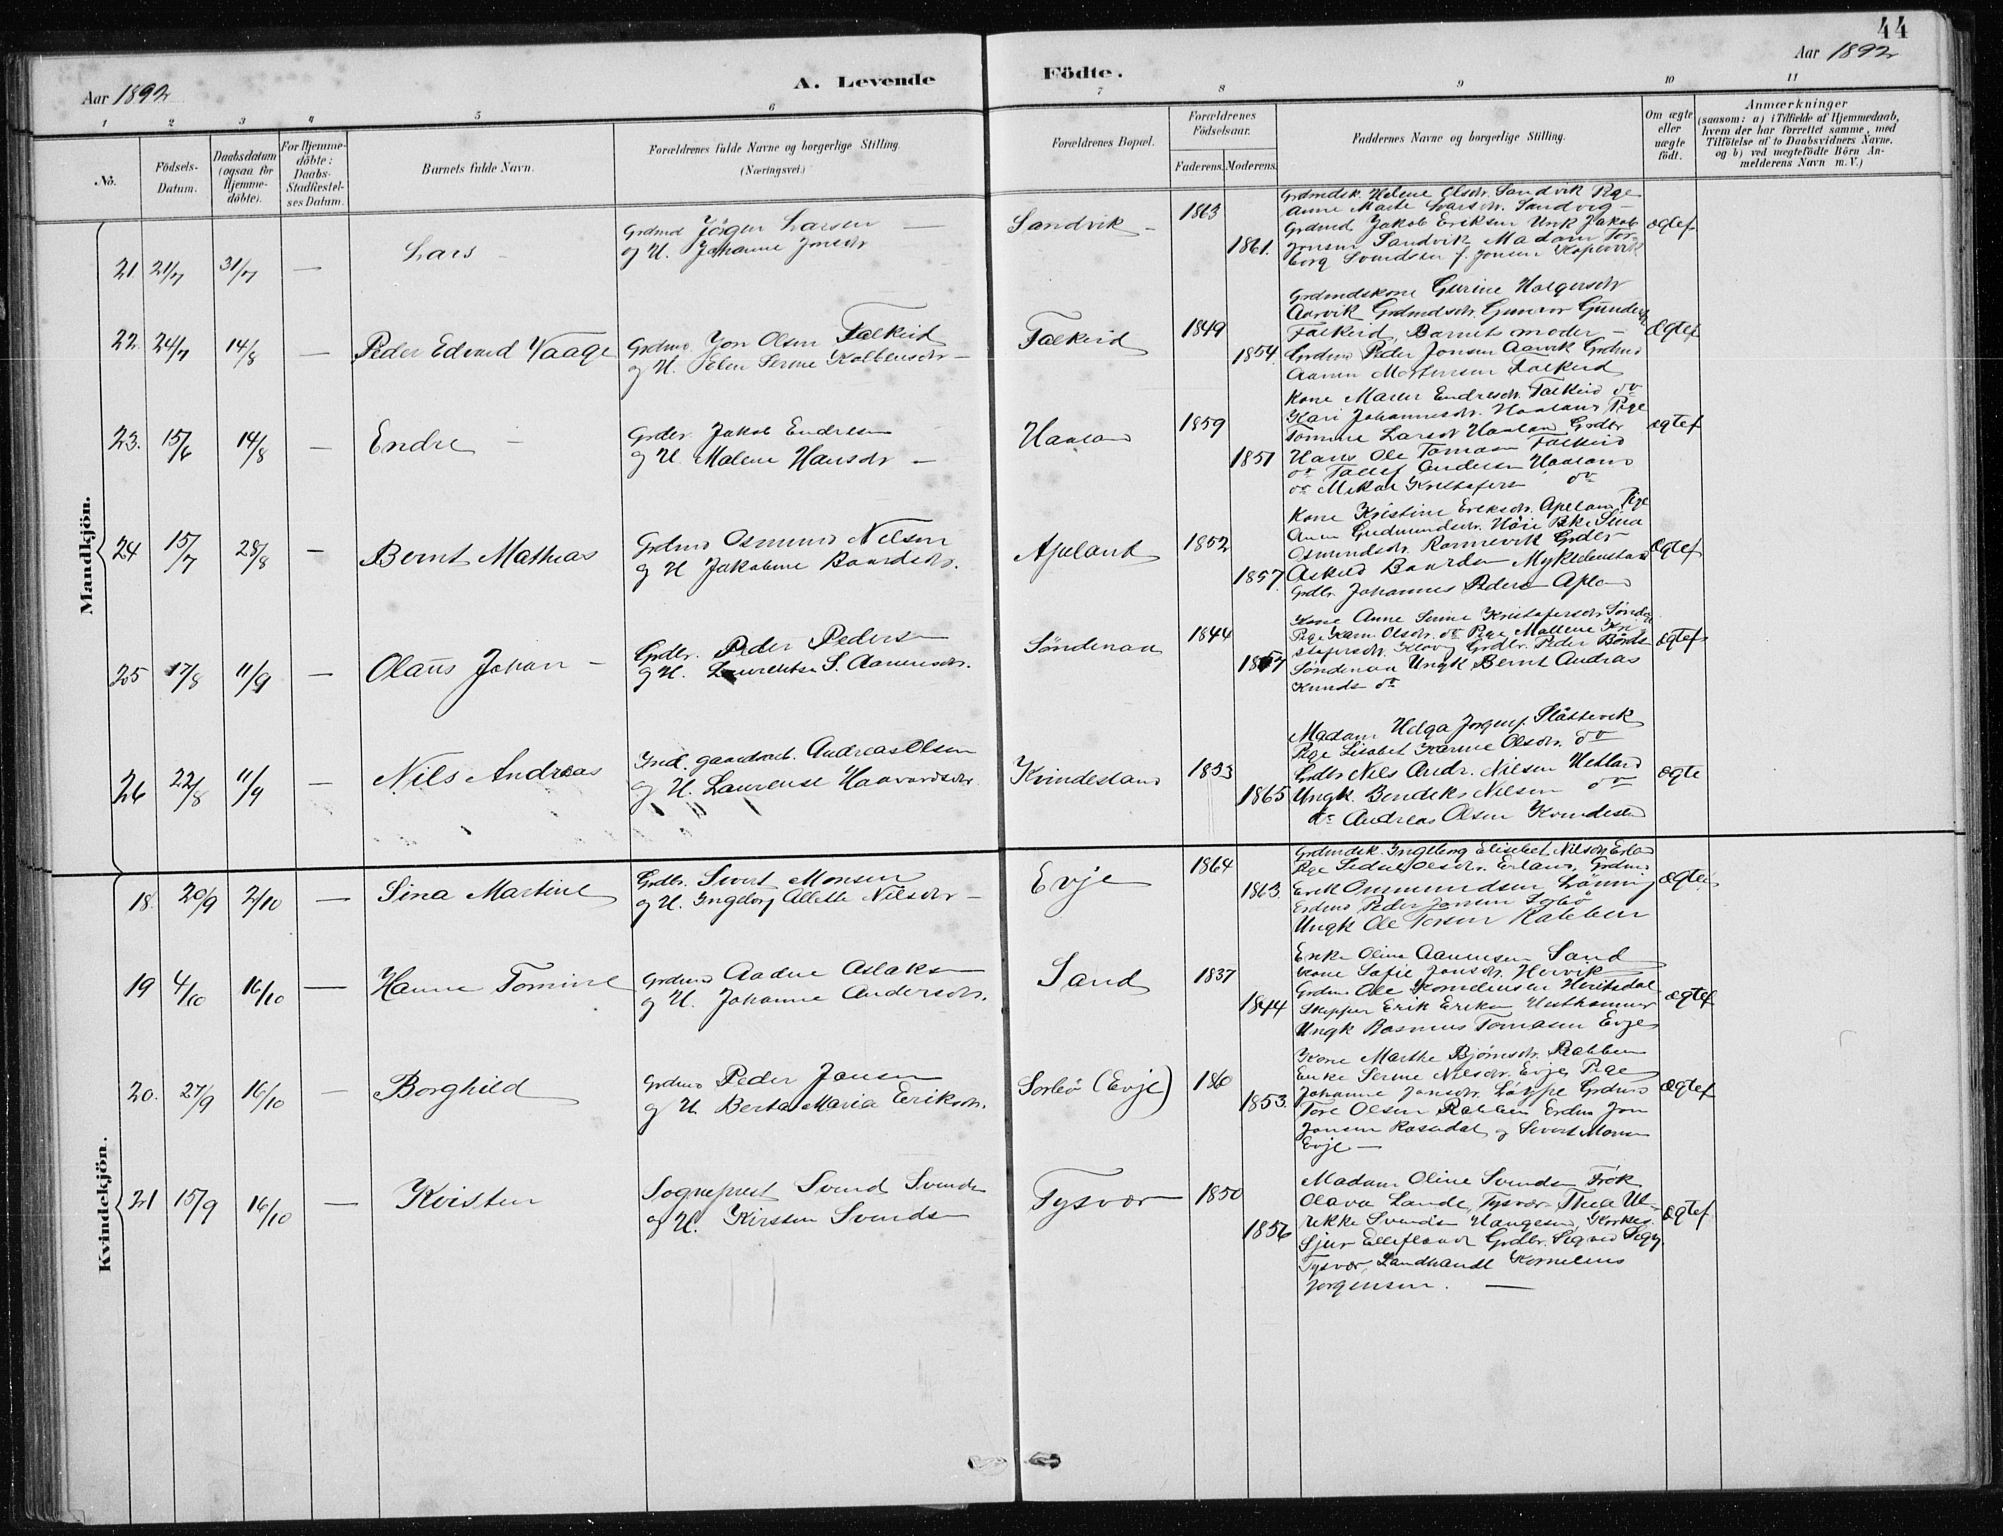 44
Aar 1892
A. Levende
Födte.
Aar 1892
1 2 3 4 5 6 7 8 9 10 11
Nö.
Födsels-Datum.
Daabsdatum (ogsaa for Hjemme-döbte).
For Hjemme-döbte: Daabs-Stadfæstel-ses Datum.
Barnets fulde Navn.
Forældrenes fulde Navne og borgerlige Stilling.
(Næringsvei.)
Forældrenes Bopæl.
Forældrenes Födselsaar.
Faderens. Moderens.
Faddernes Navne og borgerlige Stilling.
Om ægte eller uægte födt.
Anmærkninger
(saasom: a) i Tilfælde af Hjemmedaab,
hvem der har forrettet samme, med
Tilföielse af to Daabsvidners Navne,
og b) ved uægtefödte Börn An-
melderens Navn m. V.)
Mandkjön.
21 21/7 31/7 — Lars –
Grdmd Jörgen Larsen —
og H. Johanne Jonsdr
Sandvik – 1863 1861.
Grdmdsk. Helene Olsdr. Sandvik Pige
Anne Marte Larsdr. Sandvig –
Grdmd Jakob Eriksen Ungk Jakob
Jonsen Sandvik Madam Tor-
borg Svendsen f. Jonsen Kopervik
ægtef
22. 24/7 14/8 — Peder Edvard Vaage
Grdmd Jon Olsen Falkeid
og H. Elen Serine Kolbensdr –
Falkeid 1849 1854.
Grdmdskone Gurine Holgersdr
Aarvik Grdmdsdr. Gunvor Gunders
Falkeid, Barnets moder –
Grdmd Peder Jonsen Aarvik Grdmd
Aamen Mortensen Falkeid
Ægtef
23. 15/6 14/8 – Endre –
Grdbr Jakob Endresen
og H. Malene Hansdr –
Haaland 1859 1851
Kone Maren Endresdr. Falkeid do
Kari Johannesdr. Haaland Pige
Tomine Larsdr Haaland Grdbr
Hans Ole Tomasen Falkeid
do Tollef Andersen Haaland
do Mikal Kristofersen do
ægtef
24 15/7 28/8 – Bernt Mathias
Grdmd Osmund Nilsen
og H Jakobine Baardsdr.
Apeland 1852 1857.
Kone Kristine Eriksdr. Apeland Pige
Anna Gudmundsdr. Höie Pike Sina
Osmundsdr. Rannevik Grdbr
Askild Baardsen Myklebustad
Grdbr. Johannes Pedersen Apland
Ægtef
25 17/8 11/9 — Olaus Johan –
Grdbr. Peder Pedersen
og H. Laurentse S. Aamensdr.
Söndenaa 1844 1857
Kone Anne Serine Kristofersdr. Söndenaa
Pige Karen Olsdr. do Pige Mallene Kri-
stofersdr. Klovg Grdbr. Peder Bards.
Söndenaa Ungk Bernt Andras
Knuds do
ægtef
26 22/8 11/9 — Nils Andreas
Ind. gaardarb. Andreas Olsen
og H. Laurense Haavardsdr.
Kvindesland 1833 1865
Madam Helga Jorgens. Slåttevik
Pige Lisabet Karine Olsdr. do
Grdbr Nils Andr. Nilsen Hetland
Ungk. Bendiks Nilsen do
do Andreas Olsen Kvindesla
ægte
Kvindekjön.
18. 20/9 2/10 — Sina Martine
Grdbr. Sivert Monsen
og H. Ingeborg Allette Nilsdr –
Evje 1864 1863.
Grdmdsk. Ingeborg Elisabet Nilsdr. Erland
Pige Sidsel Olsdr. Erland, Grdmd
Erik Ommundsen Lönning
Grdmd Peder Jonsen Sorbö
Ungk Ole Torsen Rabben
ægte
19 4/10 16/10 — Hanne Tomine
Grdmd Aadne Aslaksen
og H. Johanne Andersdr.
Sand 1837 1844
Enke Oline Aamensen Sand
Kone Sofie Jonsdr. Hervik
Grdmd Ole Kornelius Heribsdal
Skipper Erik Eriksen Vesthammer
Ungk Rasmus Tomasen Evje
ægtef
20. 27/9 16/10 – Borghild
Grdmd Peder Jonsen
og H. Berta Maria Eriksdr.
Sorbö (Evje) 1860 1853.
Kone Marthe Bjömsdr. Rabben
Enke Serine Nilsdr. Evje, Pige
Johanne Jonsdr. Loppe Grdmd
Tore Olsen Rabben Grdmd Jon
Jonsen Rossadal og Sivert Monsen
Evje —
ægtef
21 15/9 16/10 — Kirsten
Sogneprest Svend Svendsen
og H. Kirsten Svendsen
Tysvær 1850 1856
Madam Oline Svendsen Frök
Olava Lande, Tysvær Thea Ul-
rikke Svendsen Haugesund, Kirkes.
Sjur Elleflaadt Grdbr. Sigved Sigv.
Tysvær, Landhandl Kornelius
Jorgensen. —
ægtef